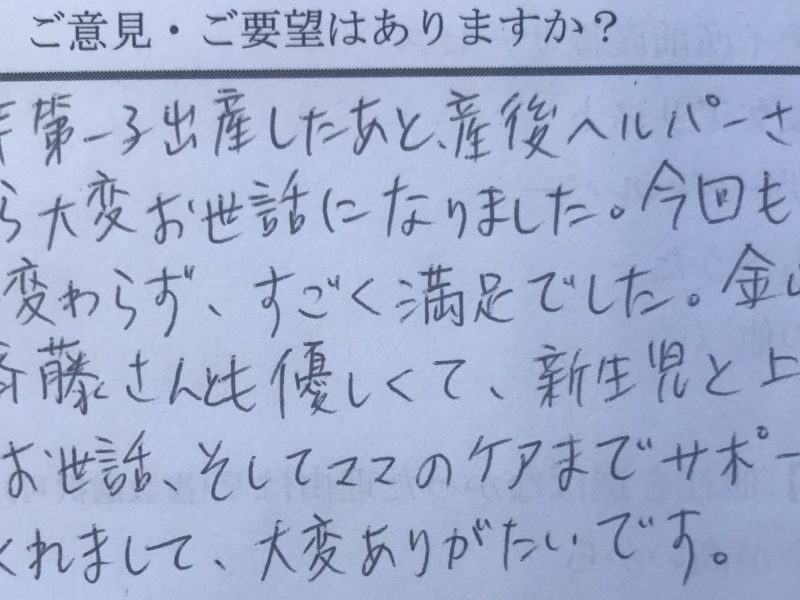 ご意見・ご要望はありますか?
第一子出産したあと、産後ヘルパーさ
ら大変お世話になりました。今回も
変わらず、すごく満足でした。金山
斉藤さんとも優しくて、新生児と上
お世話、そしてママのケアまでサポー
くれまして、大変ありがたいです。